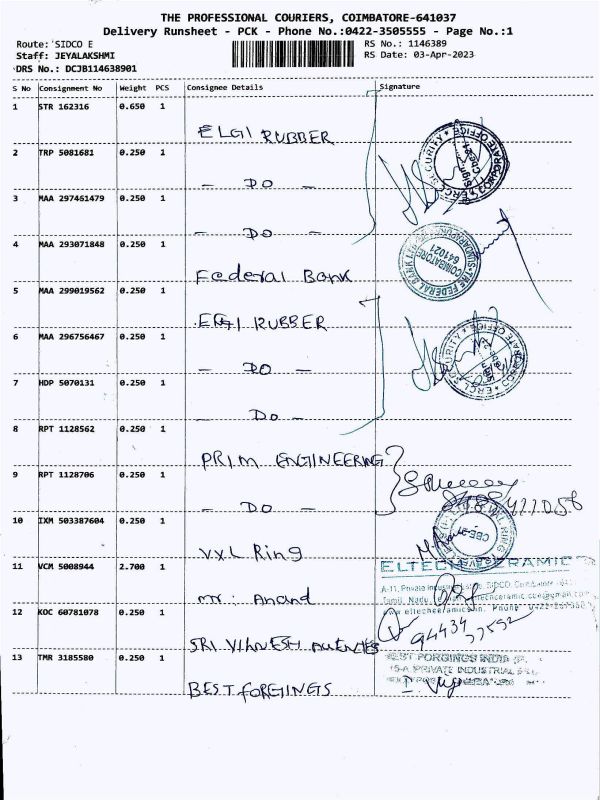 THE PROFESSIONAL COURIERS, COIMBATORE-641037
Delivery Runsheet - PCK - Phone No.:0422-3505555 - Page No.:1
Route: SIDCO E
Staff: JEYALAKSHMI
DRS No.: DCJB114638901
RS No.: 1146389
RS Date: 03-Apr-2023
S No Consignment No Weight PCS Consignee Details Signature
1 STR 162316 0.650 1
ELGI RUBBER
2 TRP 5081681 0.250 1
- DO -
3 MAA 297461479 0.250 1
- DO -
4 MAA 293071848 0.250 1
Federal Bank
5 MAA 299019562 0.250 1
ELGI RUBBER
6 MAA 296756467 0.250 1
- DO -
7 HDP 5070131 0.250 1
- Do -
8 RPT 1128562 0.250 1
PRIM ENGINEERING
9 RPT 1128706 0.250 1
- DO -
10 IXM 503387604 0.250 1
VXL Ring
11 VCM 5008944 2.700 1
mr: Anand
12 KOC 60781078 0.250 1
SRI
13 TMR 3185580 0.250 1
BEST FORGINGS
ERCL SECURITY
CORPORATE OFFICE
THE FEDERAL BANK
COIMBATORE
641021
ERCL SECURITY
OFFICE
CBE-21
ELTECH CERAMIC
A-11, Private
SIDCO, Coimbatore
Tamil Nadu
Phone
94434
77592
BEST FORGINGS INDIA
PRIVATE INDUSTRIAL